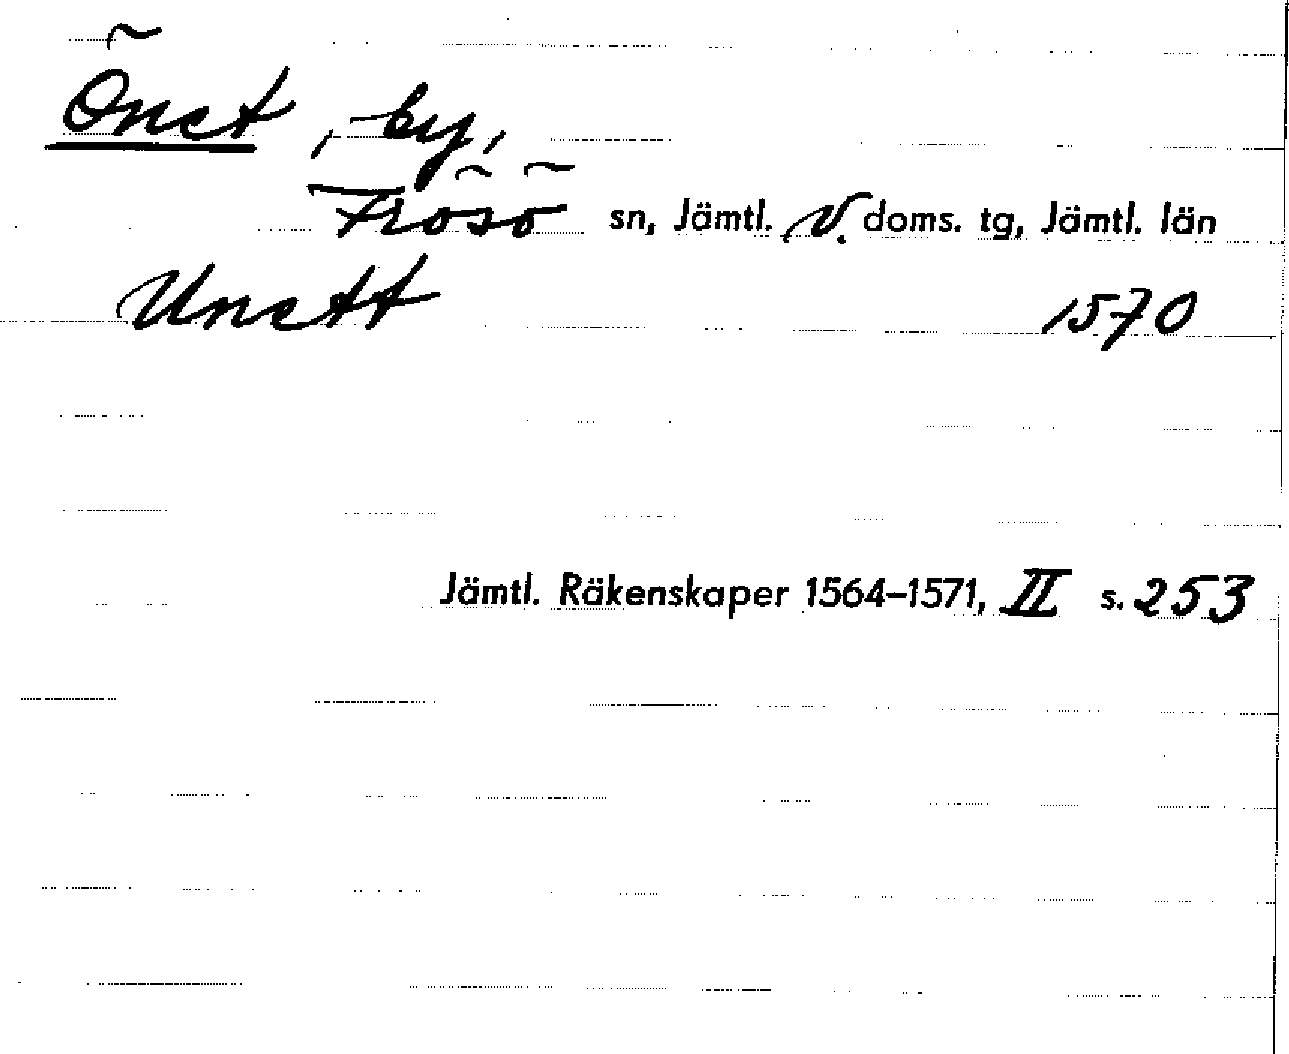 Önet, by,
Frösö sn, Jämtl. V. doms. tg, Jämtl. län
Unett 1570
Jämtl. Räkenskaper 1564–1571, II s. 253